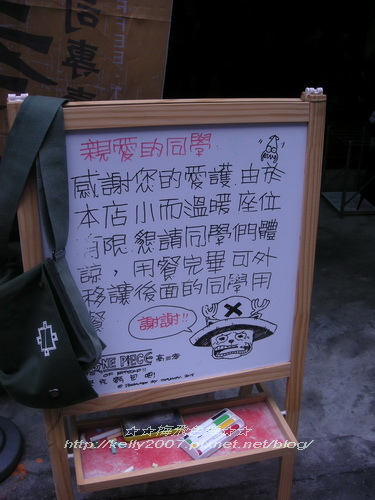 司專賣
親愛的同學
感謝您的愛護.由於
本店小而溫暖座位
有限.懇請同學們體
諒，用餐完畢可外
移讓後面的同學用
餐
謝謝!!
ONE PIECE
http://kelly2007.pixnet.net/blog/